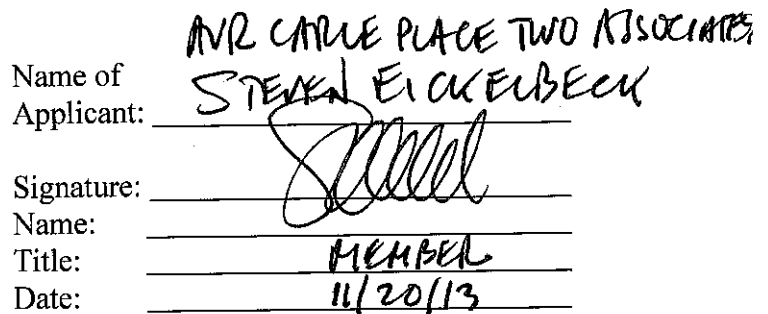 AVR CARLE PLACE TWO ASSOCIATES,
Name of STEVEN EICKELBECK
Applicant:
Signature:
Name:
Title: MEMBER
Date: 11/20/13